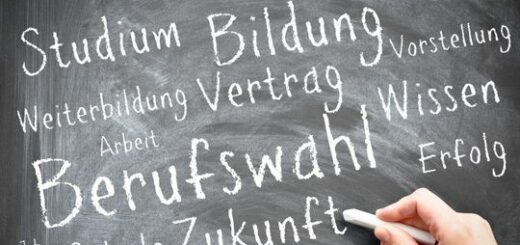 Studium Bildung Vorstellung
Weiterbildung Vertrag Wissen
Arbeit
Berufswahl Erfolg
Zukunft